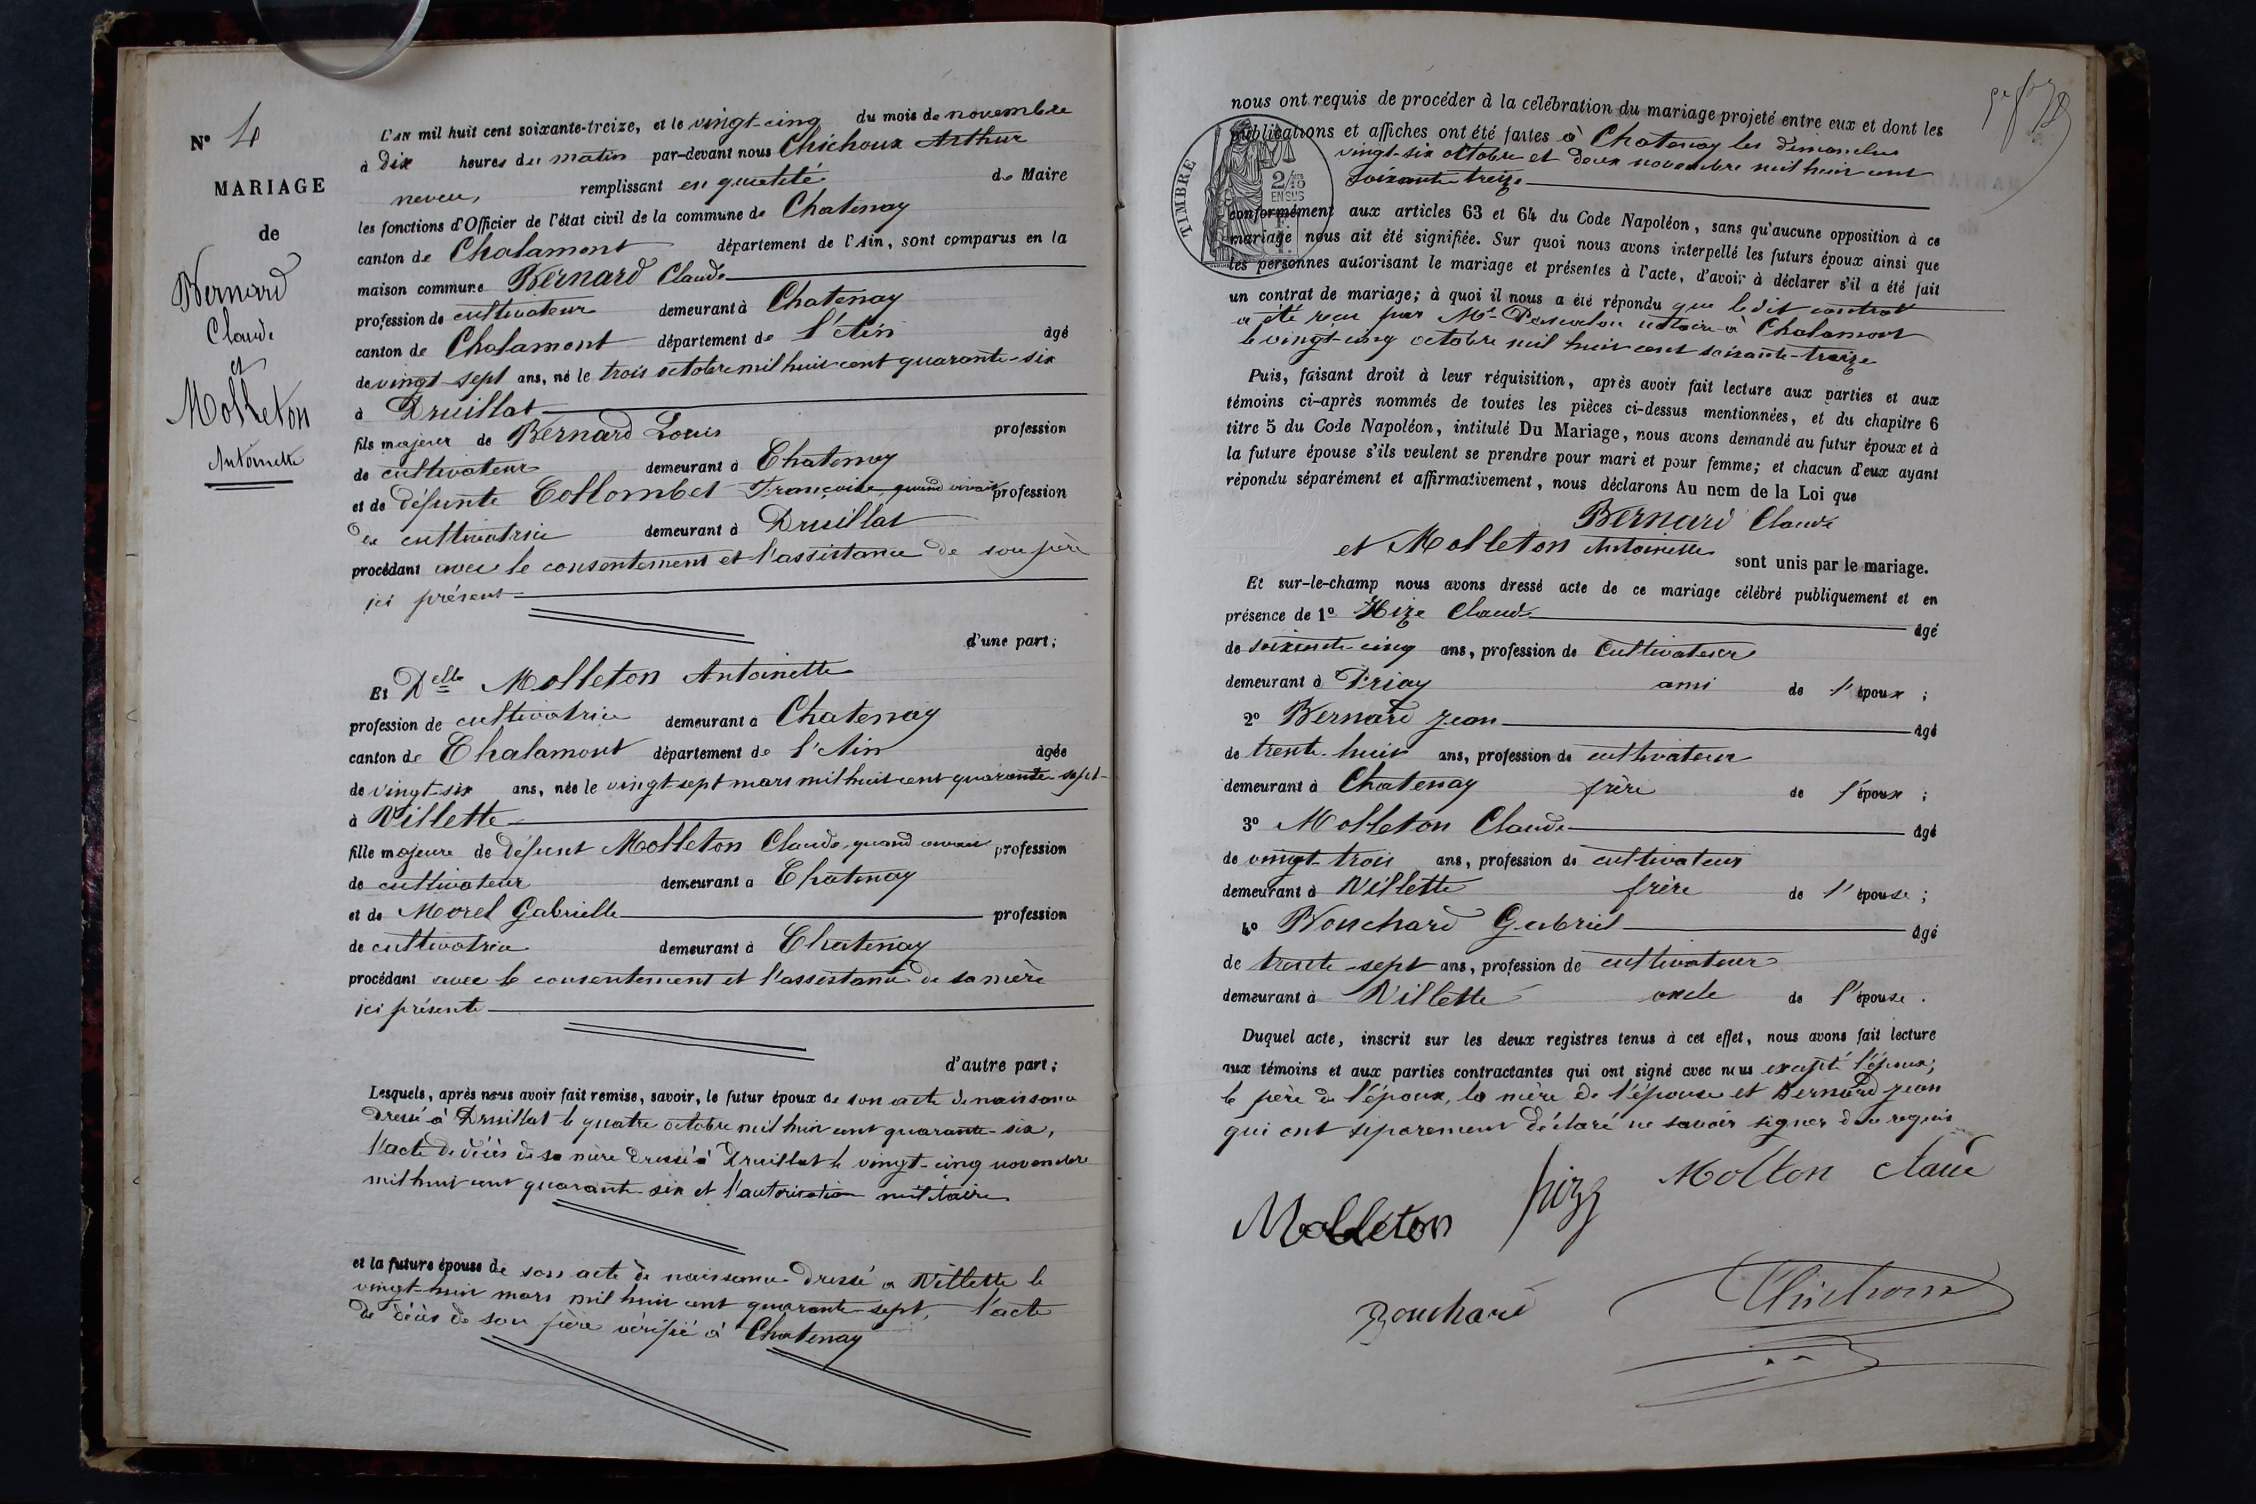 N° 4
MARIAGE
de
Bernard
Claude
et
Molleton
Antoinette
L'AN mil huit cent soixante-treize, et le vingt-cinq du mois de novembre
à dix heures du matin par-devant nous Chichoux Arthur
neveu, remplissant en qualité de Maire
les fonctions d'Officier de l'état civil de la commune de Chatenay
canton de Chalamont département de l'Ain, sont comparus en la
maison commune Bernard Claude
profession de cultivateur demeurant à Chatenay
canton de Chalamont département de l'Ain âgé
de vingt-sept ans, né le trois octobre mil huit cent quarante-six
à Druillat
fils majeur de Bernard Louis profession
de cultivateur demeurant à Chatenay
et de défunte Collombet Françoise, quand vivait profession
de cultivatrice demeurant à Druillat
procédant avec le consentement et l'assistance de son père
ici présent
d'une part;
Et Delle Molleton Antoinette
profession de cultivatrice demeurant à Chatenay
canton de Chalamont département de l'Ain âgée
de vingt-six ans, née le vingt-sept mars mil huit cent quarante-sept
à Villette
fille majeure de défunt Molleton Claude, quand vivait profession
de cultivateur demeurant à Chatenay
et de Morel Gabrielle profession
de cultivatrice demeurant à Chatenay
procédant avec le consentement et l'assistance de sa mère
ici présente
d'autre part;
Lesquels, après nous avoir fait remise, savoir, le futur époux de son acte de naissance
dressé à Druillat le quatre octobre mil huit cent quarante-six,
l'acte de décès de sa mère dressé à Druillat le vingt-cinq novembre
mil huit cent quarante-six et l'autorisation militaire
et la future épouse de son acte de naissance dressé à Villette le
vingt-huit mars mil huit cent quarante-sept, l'acte
de décès de son père vérifié à Chatenay
nous ont requis de procéder à la célébration du mariage projeté entre eux et dont les
publications et affiches ont été faites à Chatenay les dimanches
vingt-six octobre et deux novembre mil huit cent
soixante treize
TIMBRE
2/10
EN SUS
conformément aux articles 63 et 64 du Code Napoléon, sans qu'aucune opposition à ce
mariage nous ait été signifiée. Sur quoi nous avons interpellé les futurs époux ainsi que
les personnes autorisant le mariage et présentes à l'acte, d'avoir à déclarer s'il a été fait
un contrat de mariage; à quoi il nous a été répondu que ledit contrat
a été reçu par Me Pascalon notaire à Chalamont
le vingt-cinq octobre mil huit cent soixante-treize
Puis, faisant droit à leur réquisition, après avoir fait lecture aux parties et aux
témoins ci-après nommés de toutes les pièces ci-dessus mentionnées, et du chapitre 6
titre 5 du Code Napoléon, intitulé Du Mariage, nous avons demandé au futur époux et à
la future épouse s'ils veulent se prendre pour mari et pour femme; et chacun d'eux ayant
répondu séparément et affirmativement, nous déclarons Au nom de la Loi que
Bernard Claude
et Molleton Antoinette
sont unis par le mariage.
Et sur-le-champ nous avons dressé acte de ce mariage célébré publiquement et en
présence de 1° Hize Claude âgé
de soixante cinq ans, profession de cultivateur
demeurant à Priay ami de l'époux;
2° Bernard Jean âgé
de trente-huit ans, profession de cultivateur
demeurant à Chatenay frère de l'époux;
3° Molleton Claude âgé
de vingt-trois ans, profession de cultivateur
demeurant à Villette frère de l'épouse;
4° Bouchard Gabriel âgé
de trente-sept ans, profession de cultivateur
demeurant à Villette oncle de l'épouse.
Duquel acte, inscrit sur les deux registres tenus à cet effet, nous avons fait lecture
aux témoins et aux parties contractantes qui ont signé avec nous excepté l'époux,
le père de l'époux, la mère de l'épouse et Bernard Jean
qui ont séparement déclaré ne savoir signer de ce requis
Molleton
hizz
Molton claue
Bouchard
Chichoux